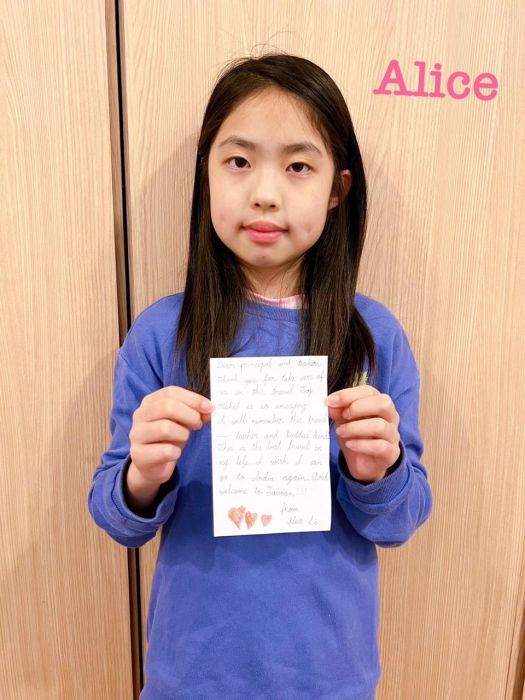 Alice
Dear principal and teachers
Thank you for take care of
us in this travel. Taj
Mahal is so amazing!
I will remember this travel
— teacher and buddies kind.
This is the best travel in
my life. I wish I can
go to India again. And
welcome to Taiwan!!!
from